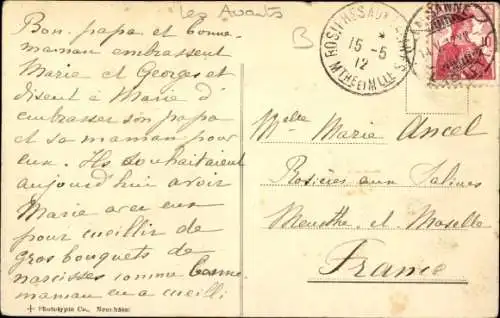 Les Avants
B
Bon-papa et bonne-
maman embrassent
Marie et Georges et
disent à Marie d'
embrasser son papa
et sa maman pour
eux. Ils souhaiteraient
aujourd'hui avoir
Marie avec eux
pour cueillir de
gros bouquets de
narcisses comme bonne
maman en a cueilli
Phototypie Co., Neuchâtel
ROSIÈRES AUX
15-5
12
MTHE ET MLLE
LAUSANNE
10
Melle Marie Ancel
Rosières aux Salines
Meurthe-et-Moselle
France